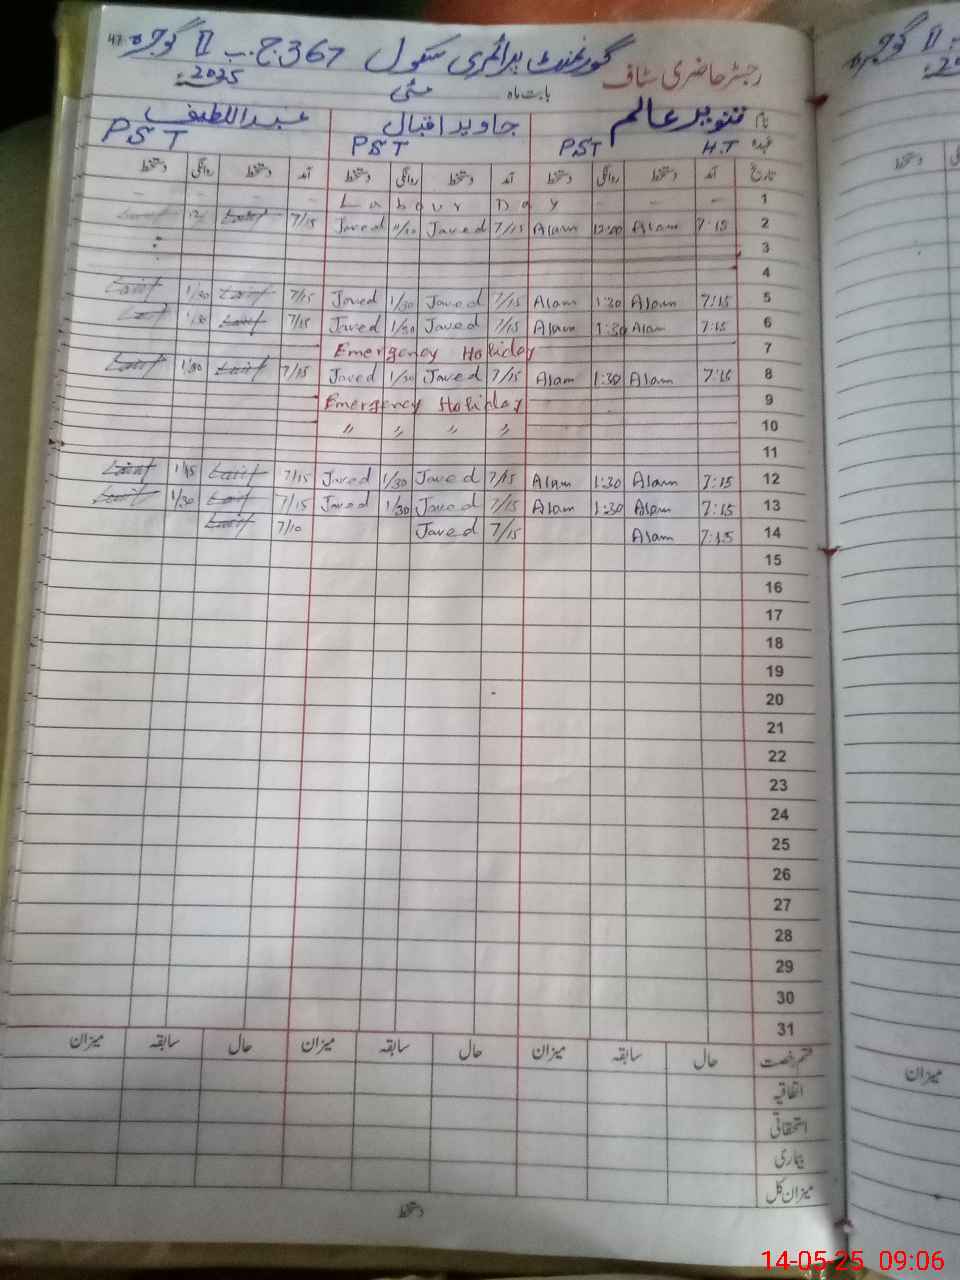 47
رجسٹر حاضری سٹاف گورنمنٹ پرائمری سکول 367 ج ب II گوجرہ
بابت ماہ مئی 2025ء
نام تنویر عالم جاوید اقبال عبداللطیف
عہدہ H.T PST PST PST
تاریخ آمد دستخط روانگی دستخط آمد دستخط روانگی دستخط آمد دستخط روانگی دستخط
1 Labour Day
2 7:15 Alam 12:00 Alam 7/15 Javed Javed 7/15
3
4
5 7:15 Alam 1:30 Alam 7/15 Javed 1/30 Javed 7/15 Latif 1/30 Latif
6 7:15 Alam 1:30 Alam 7/15 Javed 1/30 Javed 7/15 Latif 1/30 Latif
7 Emergency Holiday
8 7:15 Alam 1:30 Alam 7/15 Javed 1/30 Javed 7/15 Latif 1/30 Latif
9 Emergency Holiday
10 〃 〃 〃 〃
11
12 7:15 Alam 1:30 Alam 7/15 Javed 1/30 Javed 7/15 Latif Latif
13 7:15 Alam 1:30 Alam 7/15 Javed 1/30 Javed 7/15 Latif 1/30 Latif
14 7:15 Alam 7/15 Javed 7/10 Latif
15
16
17
18
19
20
21
22
23
24
25
26
27
28
29
30
31
قسم رخصت حال سابقہ میزان حال سابقہ میزان حال سابقہ میزان
اتفاقیہ
استحقاقی
بیماری
میزان کل
دستخط
میزان
14-05-25 09:06